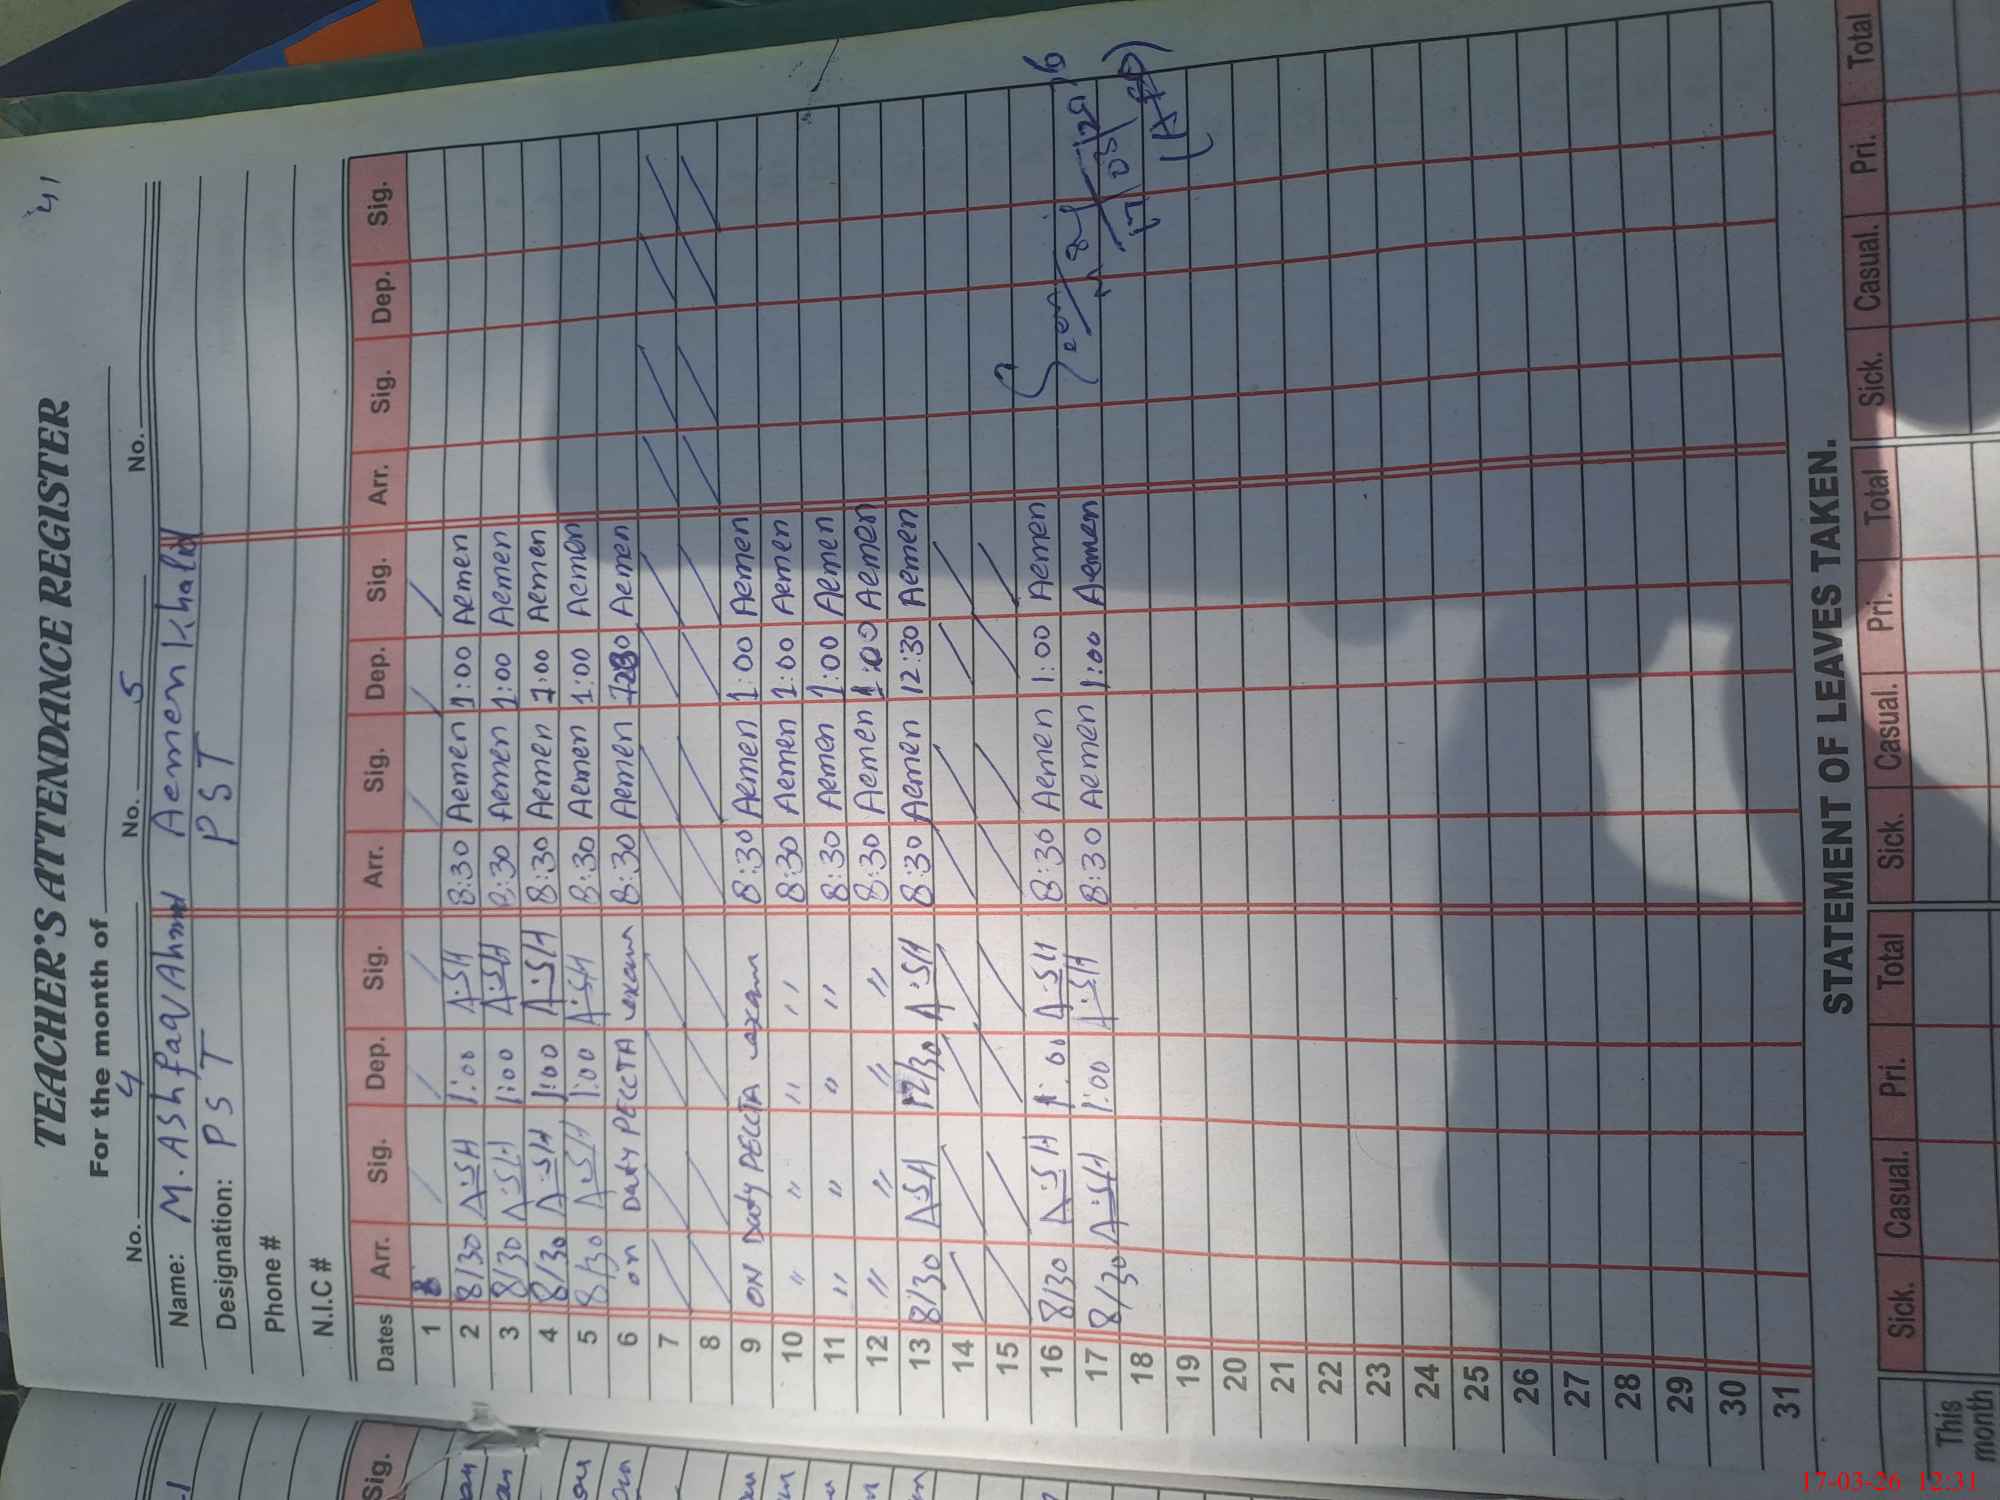 41
TEACHER'S ATTENDANCE REGISTER
For the month of
No. 4 No. 5 No.
Name: M. Ashfaq Ahmad Aemen Khalid
Designation: PST PST
Phone #
N.I.C #
Dates Arr. Sig. Dep. Sig. Arr. Sig. Dep. Sig. Arr. Sig. Dep. Sig.
1 8
2 8/30 A.SH 1:00 A.SH 8:30 Aemen 1:00 Aemen
3 8/30 A.SH 1:00 A.SH 8:30 Aemen 1:00 Aemen
4 8/30 A.SH 1:00 A.SH 8:30 Aemen 1:00 Aemen
5 8/30 A.SH 1:00 A.SH 8:30 Aemen 1:00 Aemen
6 on Duty PECCTA exam 8:30 Aemen Aemen
7
8
9 ON Duty PECCTA exam 8:30 Aemen 1:00 Aemen
10 " " " " 8:30 Aemen 1:00 Aemen
11 " " " " 8:30 Aemen 1:00 Aemen
12 " " " " 8:30 Aemen 1:00 Aemen
13 8/30 A.SH 12/30 A.SH 8:30 Aemen 12:30 Aemen
14
15
16 8/30 A.SH 1:00 A.SH 8:30 Aemen 1:00 Aemen Seen
17 8/30 A.SH 1:00 A.SH 8:30 Aemen 1:00 Aemen
18
19
20
21
22
23
24
25
26
27
28
29
30
31
STATEMENT OF LEAVES TAKEN.
Sick. Casual. Pri. Total Sick. Casual. Pri. Total Sick. Casual. Pri. Total
This
month
17-03-26 12:31